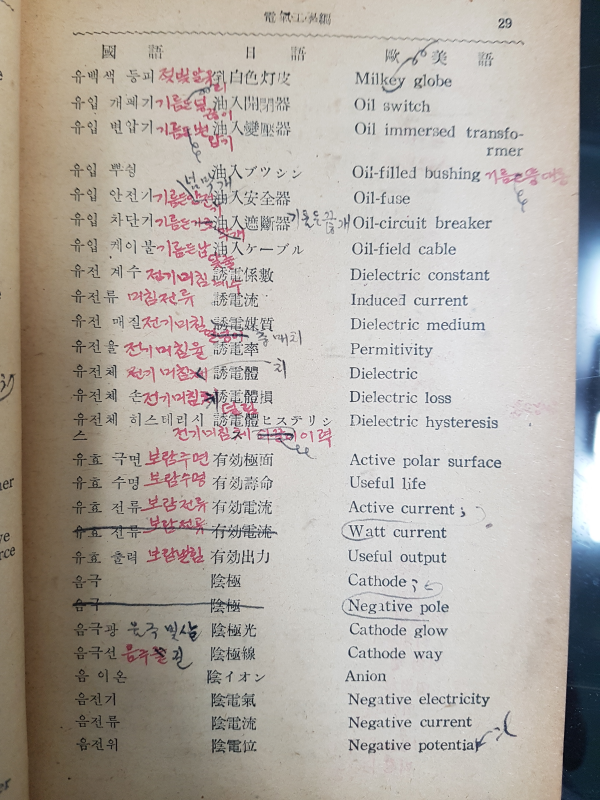 電氣工學編 29
國語 日語 歐美語
유백색 등피 乳白色灯皮 Milkey globe
유입 개폐기 기름든 油入開閉器 Oil switch
유입 변압기 기름든 油入變壓器 Oil immersed transfo-
rmer
유입 뿌슁 油入ブツシン Oil-filled bushing 기름든
유입 안전기 油入安全器 Oil-fuse
유입 차단기 기름든 油入遮斷器 Oil-circuit breaker
유입 케이불 기름든 油入ケーブル Oil-field cable
유전 계수 전기미침 誘電係數 Dielectric constant
유전류 미침전류 誘電流 Induced current
유전 매질 전기미침 誘電媒質 Dielectric medium
유전율 전기미침율 誘電率 Permitivity
유전체 전기미침 誘電體 Dielectric
유전체 손 전기미침 誘電體損 Dielectric loss
유전체 히스테리시 誘電體ヒステリシ Dielectric hysteresis
스 전기미침체 이력
유효 극면 보람극면 有効極面 Active polar surface
유효 수명 보람수명 有効壽命 Useful life
유효 전류 보람전류 有効電流 Active current;
유효 전류 보람전류 有効電流 Watt current
유효 출력 有効出力 Useful output
음극 陰極 Cathode;
음극 陰極 Negative pole
음극광 陰極光 Cathode glow
음극선 陰極線 Cathode way
음 이온 陰イオン Anion
음전기 陰電氣 Negative electricity
음전류 陰電流 Negative current
음전위 陰電位 Negative potential